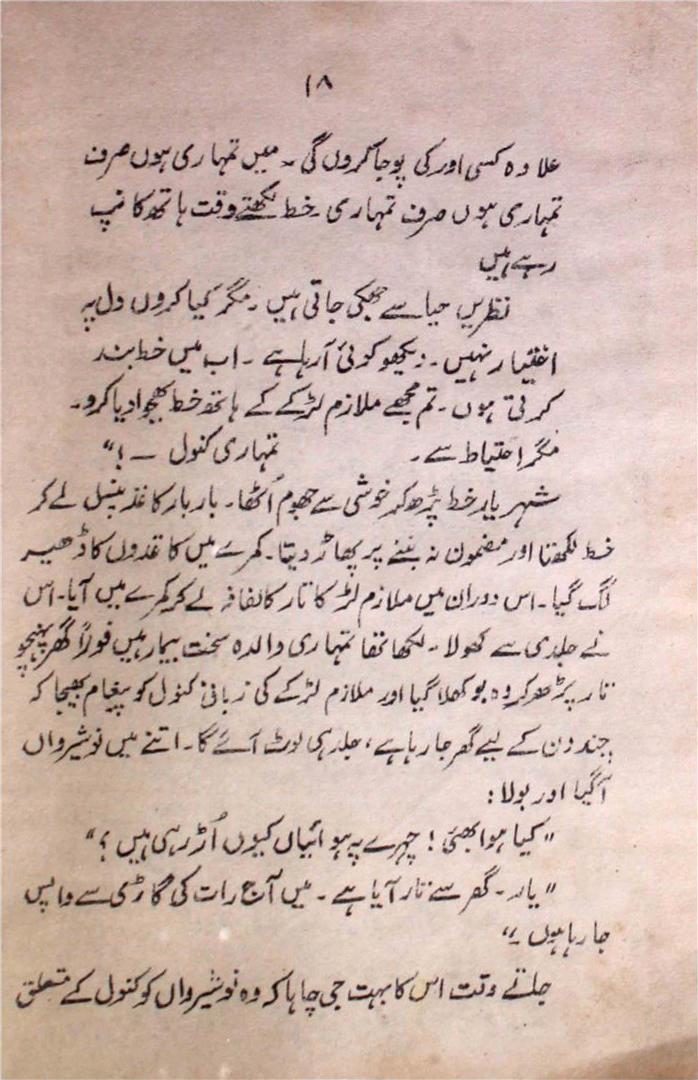 ۱۸
علاوہ کسی اور کی پوجا کروں گی ۔ میں تمہاری ہوں صرف
تمہاری ہوں صرف تمہاری ۔ خط لکھتے وقت ہاتھ کانپ
رہے ہیں
نظریں حیا سے جھکی جاتی ہیں ۔ مگر کیا کروں دل پہ
اختیار نہیں ۔ دیکھو کوئی آرہا ہے ۔ اب میں خط بند
کرتی ہوں ۔ تم مجھے ملازم لڑکے کے ہاتھ خط بھجوا دیا کرو ۔
مگر احتیاط سے ۔ تمہاری کنول ــ !“
شہریار خط پڑھ کر خوشی سے جھوم اُٹھا ۔ بار بار کاغذ پنسل لے کر
خط لکھتا اور مضمون نہ بننے پر پھاڑ دیتا ۔ کمرے میں کاغذوں کا ڈھیر
لگ گیا ۔ اس دوران میں ملازم لڑکا تار کا لفافہ لے کر کمرے میں آیا ۔ اس
نے جلدی سے کھولا ۔ لکھا تھا تمہاری والدہ سخت بیمار ہیں فوراً گھر پہنچو
تار پڑھ کر وہ بوکھلا گیا اور ملازم لڑکے کی زبانی کنول کو پیغام بھیجا کہ
چند دن کے لیے گھر جا رہا ہے ، جلد ہی لوٹ آئے گا ۔ اتنے میں نوشیرواں
آگیا اور بولا :
”کیا ہوا بھئی ! چہرے پہ ہوائیاں کیوں اُڑ رہی ہیں ؟“
”یار ۔ گھر سے تار آیا ہے ۔ میں آج رات کی گاڑی سے واپس
جا رہا ہوں ۔“
جاتے وقت اس کا بہت جی چاہا کہ وہ نوشیرواں کو کنول کے متعلق